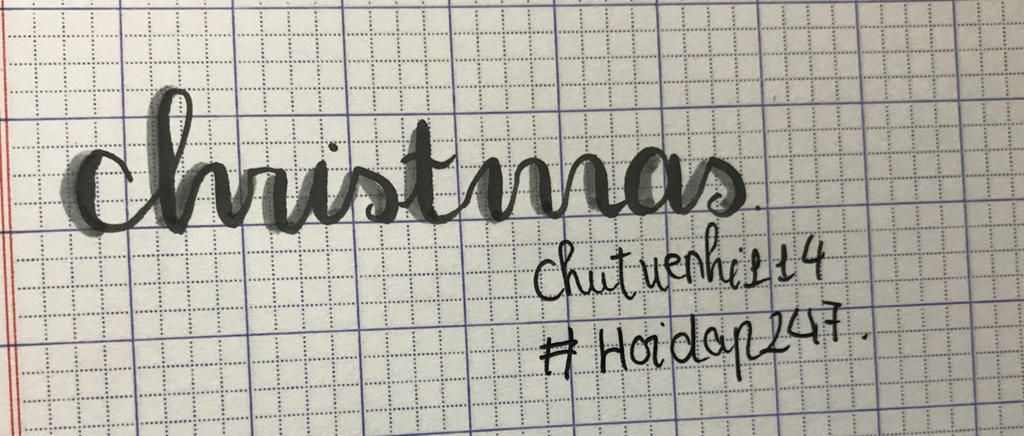 christmas.
chutuenhi114
# Hoidap247.